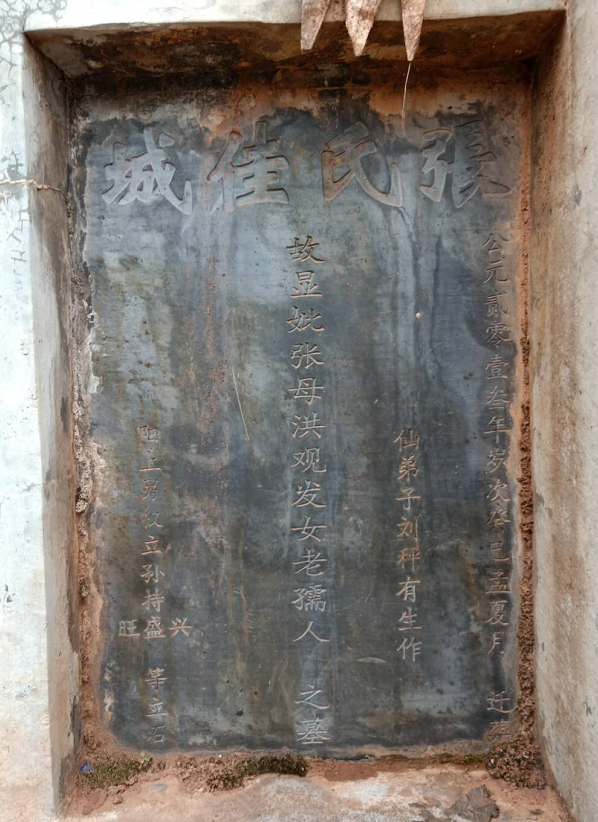 張氏佳城
公元贰零壹叁年岁次癸巳孟夏月 迁
仙弟子刘秤有生作
故显妣张母洪观发女老孺人 之墓
阳上男汉立孙持盛兴旺 等立石